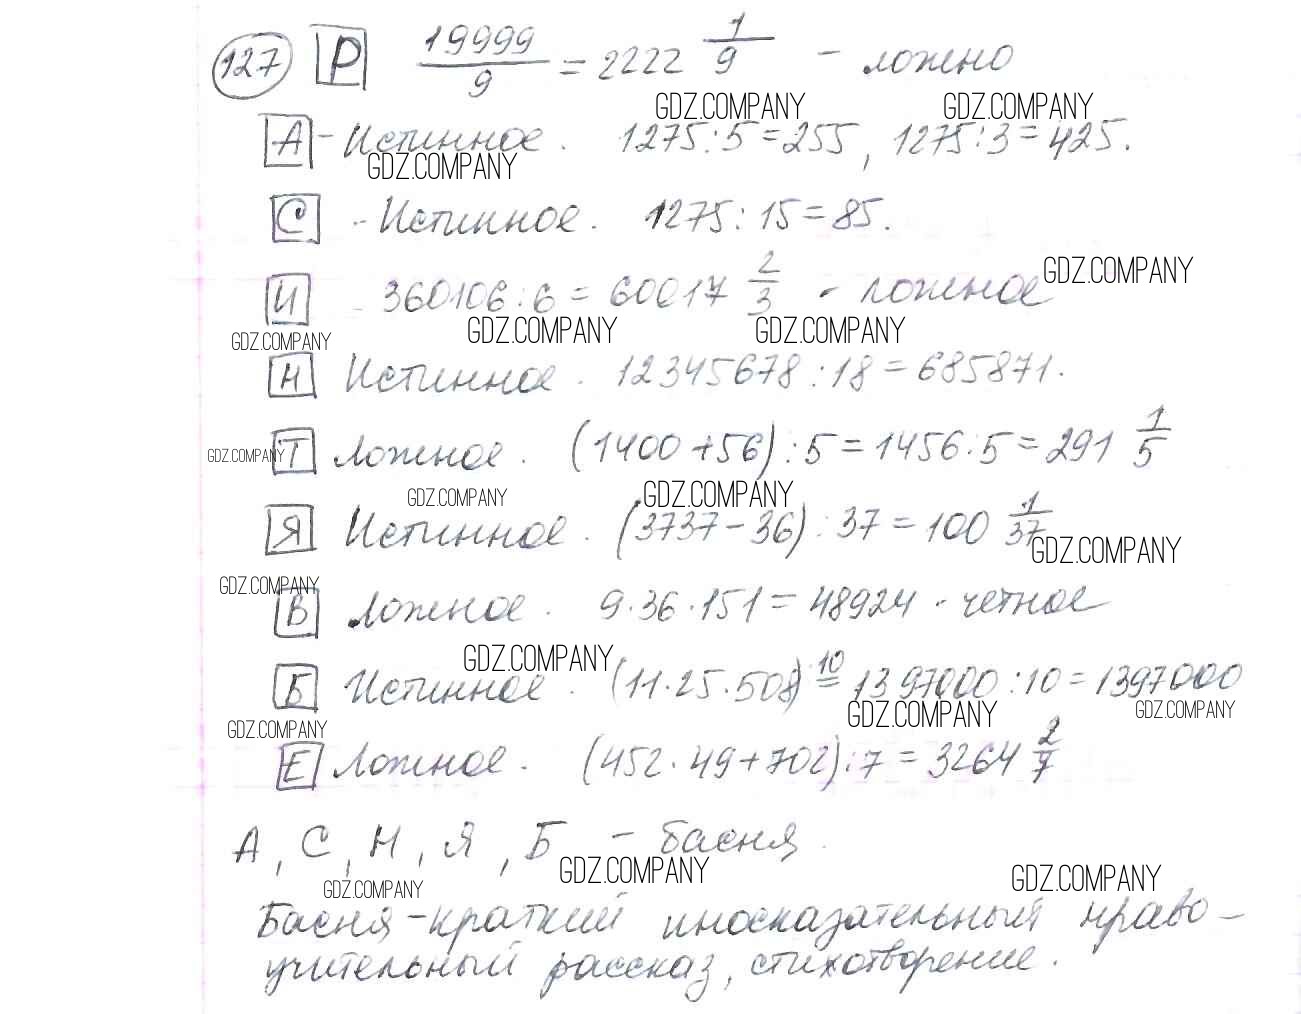 127 Р 19999/9 = 2222 1/9 – ложно
GDZ.COMPANY GDZ.COMPANY
А – Истинное. 1275:5=255, 1275:3=425.
GDZ.COMPANY
С – Истинное. 1275:15=85.
GDZ.COMPANY
И 360106:6=60017 2/3 - ложное
GDZ.COMPANY GDZ.COMPANY GDZ.COMPANY
Н Истинное. 12345678:18=685871.
Т Ложное. (1400+56):5=1456:5=291 1/5
GDZ.COMPANY
GDZ.COMPANY GDZ.COMPANY
Я Истинное. (3737-36):37=100 1/37
GDZ.COMPANY
GDZ.COMPANY
В Ложное. 9·36·151=48924 - четное
GDZ.COMPANY
Б Истинное. (11·25·508) 10 = 1397000:10=1397000
GDZ.COMPANY GDZ.COMPANY GDZ.COMPANY
Е Ложное. (452·49+702):7=3264 2/7
А, С, Н, Я, Б – басня.
GDZ.COMPANY GDZ.COMPANY GDZ.COMPANY
Басня – краткий иносказательный нраво-
учительный рассказ, стихотворение.